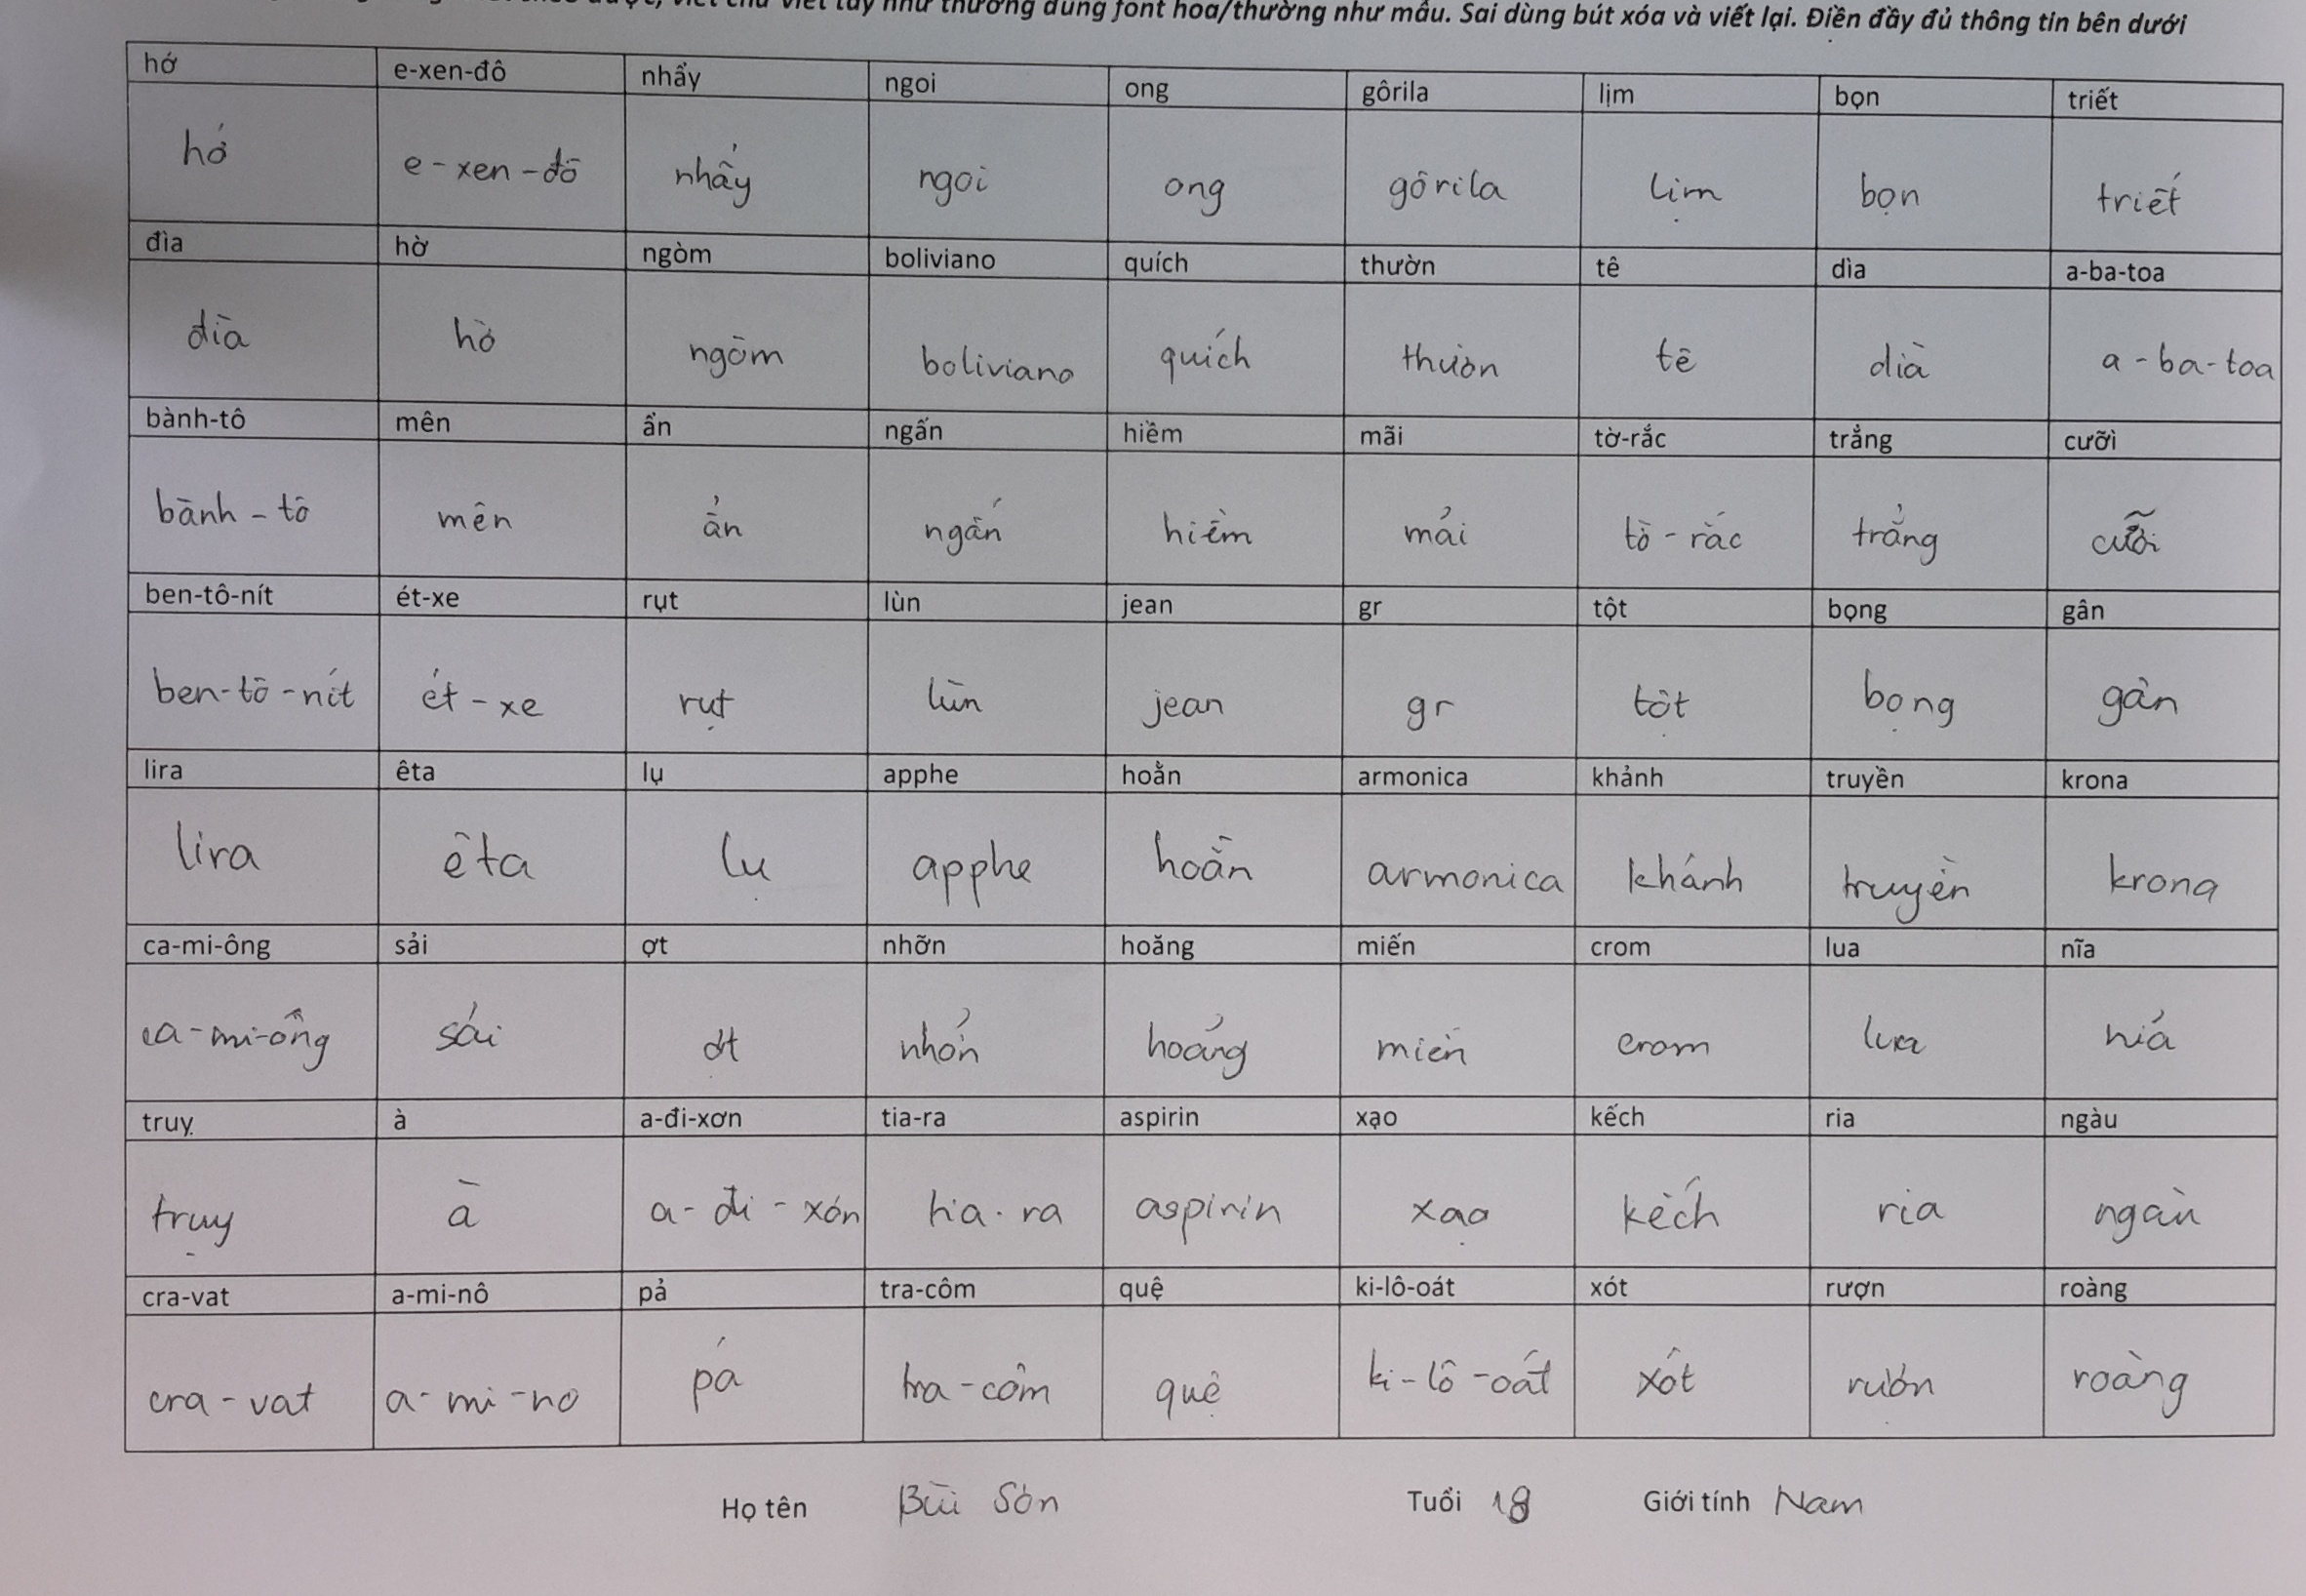 viết chữ viết tay như thường dùng font hoa/thường như mẫu. Sai dùng bút xóa và viết lại. Điền đầy đủ thông tin bên dưới
hớ e-xen-đô nhẩy ngoi ong gôrila lịm bọn triết
hớ e-xen-đô nhẩy ngoi ong gôrila lịm bọn triết
đìa hờ ngòm boliviano quích thườn tê dìa a-ba-toa
đìa hờ ngòm boliviano quích thườn tê dìa a-ba-toa
bành-tô mên ẩn ngấn hiềm mãi tờ-rắc trẳng cưỡi
bành-tô mên ẩn ngấn hiềm mải tờ-rắc trẳng cưỡi
ben-tô-nít ét-xe rụt lùn jean gr tột bọng gân
ben-tô-nít ét-xe rụt lùn jean gr tột bọng gân
lira êta lụ apphe hoằn armonica khảnh truyền krona
lira êta lụ apphe hoằn armonica khảnh truyền krona
ca-mi-ông sải ợt nhỡn hoăng miến crom lua nĩa
ca-mi-ông sải ợt nhởn hoẳng miến crom lua nỉa
truỵ à a-đi-xơn tia-ra aspirin xạo kếch ria ngàu
truỵ à a-đi-xơn tia-ra aspirin xạo kếch ria ngàu
cra-vat a-mi-nô pả tra-côm quệ ki-lô-oát xót rượn roàng
cra-vat a-mi-no pả tra-côm quệ ki-lô-oát xót rượn roàng
Họ tên Bùi Sơn Tuổi 18 Giới tính Nam